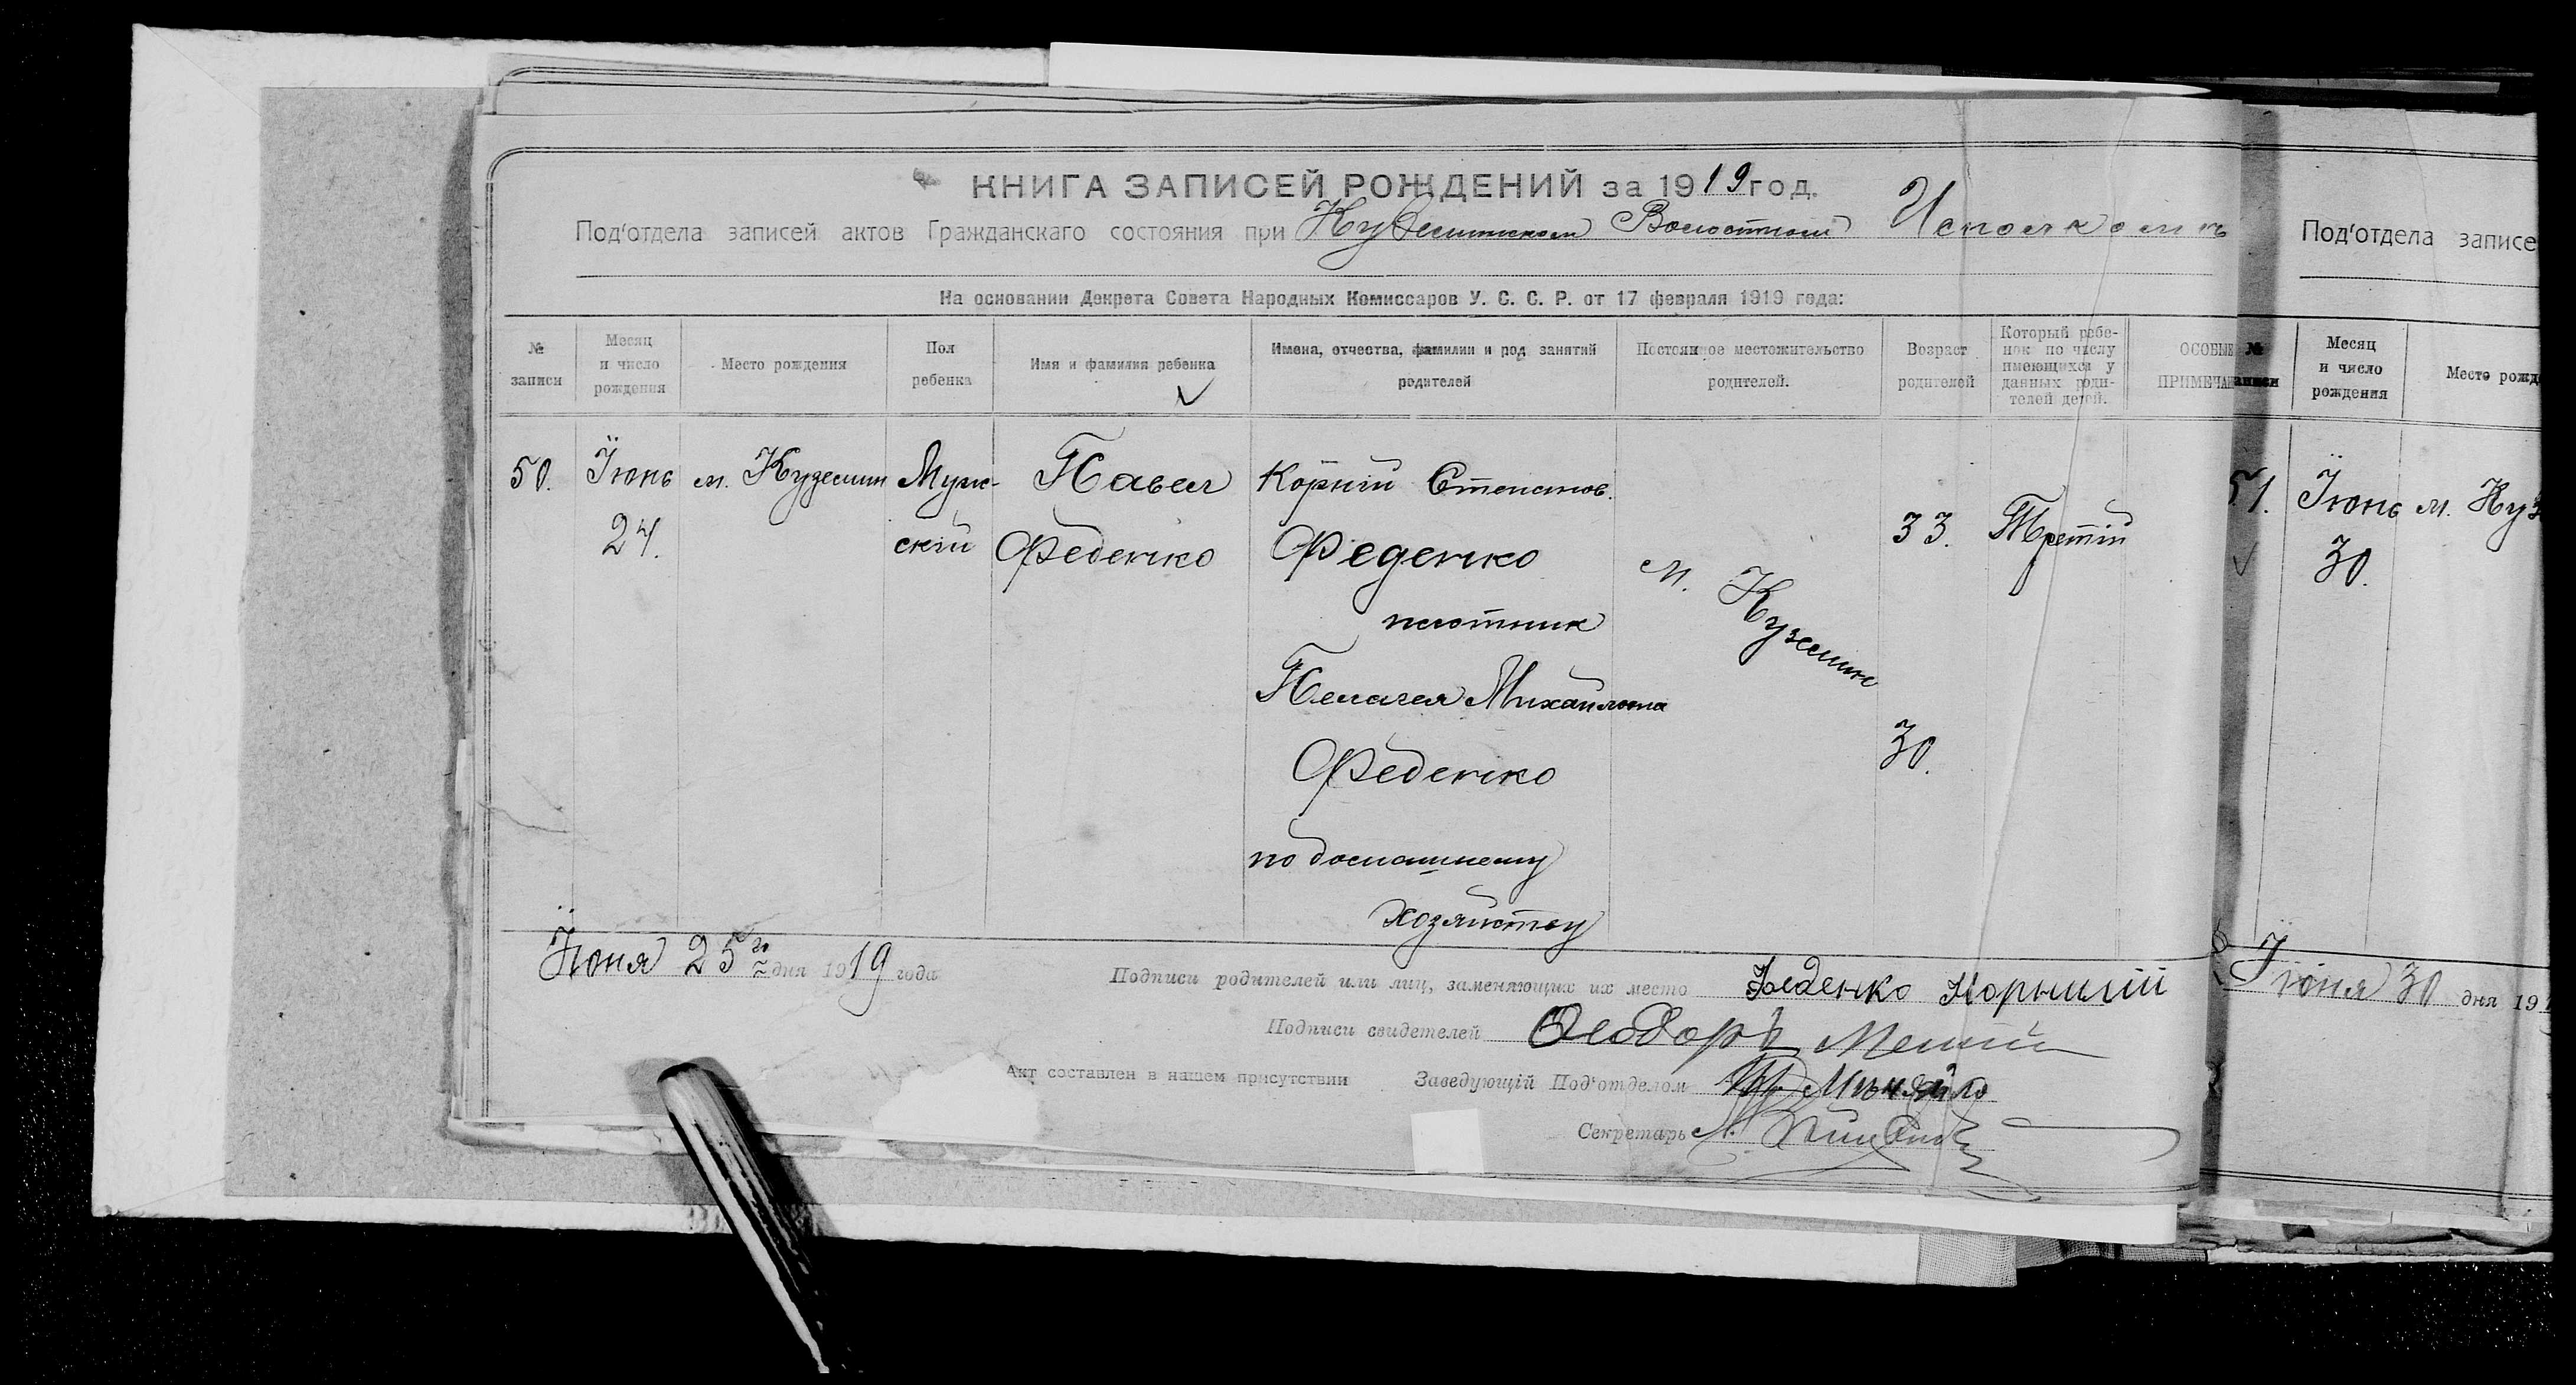 КНИГА ЗАПИСЕЙ РОЖДЕНИЙ за 1919 год.
Под'отдела записей актов Гражданскаго состояния при Куземинском Волостном Исполкоме
На основании Декрета Совета Народных Комиссаров У. С. С. Р. от 17 февраля 1919 года:
№ записи
Месяц и число рождения
Место рождения
Пол ребенка
Имя и фамилия ребенка
Имена, отчества, фамилии и род занятий родителей
Постоянное местожительство родителей.
Возраст родителей
Который ребенок по числу имеющихся у данных родителей детей.
ОСОБЫЕ ПРИМЕЧА
50.
Їюнь
24.
м. Куземин
Муж-
ский
Павел
Феденко
Корній Степанов.
Феденко
плотник
Пелагея Михайловна
Феденко
по домашнему
хозяйству
м. Куземин
33.
30.
Третій
Їюня 25го дня 1919 года
Подписи родителей или лиц, заменяющих их место Феденко Корнилій
Подписи свидетелей Феодоръ
Акт составлен в нашем присутствии Заведующій Под'отделом
Секретарь
Под'отдела записе
№ записи
Месяц и число рождения
Место рожд
51.
Їюнь
30.
м. Куз
Їюня 30 дня 19